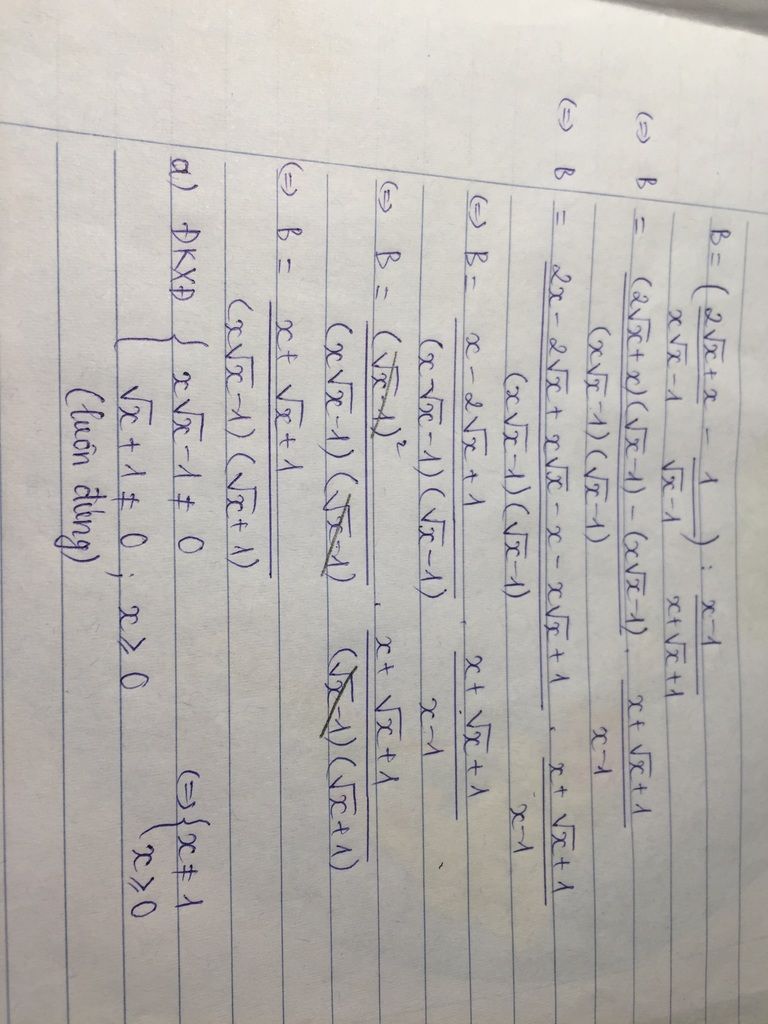 B = (2√x + x / x√x - 1 - 1 / √x - 1) : x - 1 / x + √x + 1
(=) B = (2√x + x)(√x - 1) - (x√x - 1) / (x√x - 1)(√x - 1) . x + √x + 1 / x - 1
(=) B = 2x - 2√x + x√x - x - x√x + 1 / (x√x - 1)(√x - 1) . x + √x + 1 / x - 1
(=) B = x - 2√x + 1 / (x√x - 1)(√x - 1) . x + √x + 1 / x - 1
(=) B = (√x - 1)² / (x√x - 1)(√x - 1) . x + √x + 1 / (√x - 1)(√x + 1)
(=) B = x + √x + 1 / (x√x - 1)(√x + 1)
a) ĐKXĐ { x√x - 1 ≠ 0 (=) { x ≠ 1
√x + 1 ≠ 0 ; x ⩾ 0 x ⩾ 0
(luôn đúng)